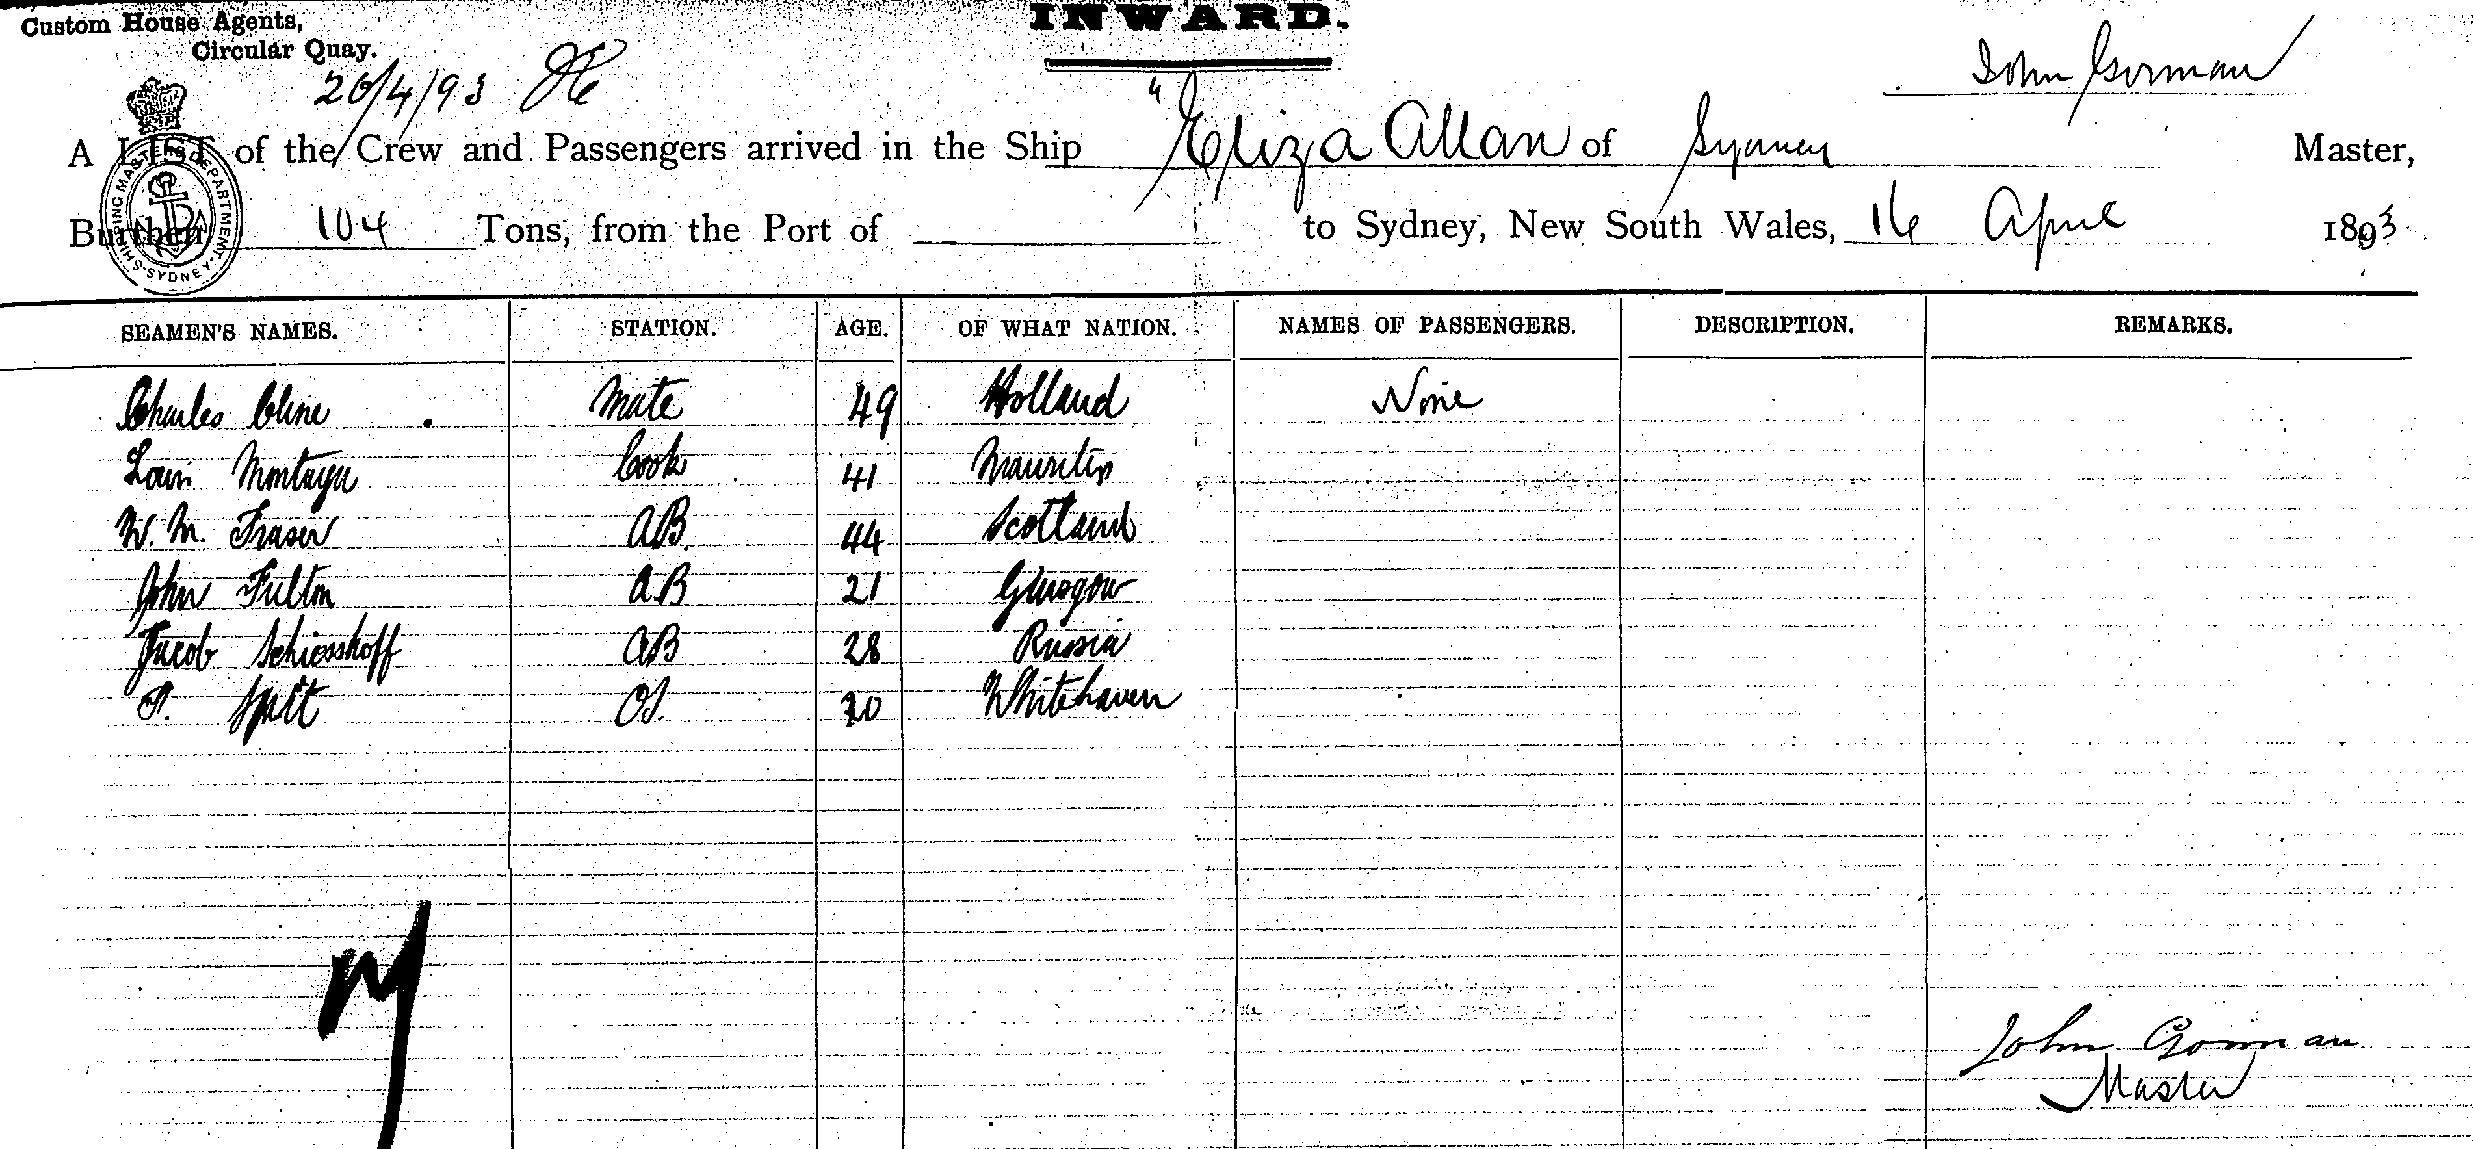 Custom House Agents,
Circular Quay.
INWARD.
John Gorman
26/4/93
A LIST of the Crew and Passengers arrived in the Ship "Eliza Allan of Sydney Master,
Burthen 104 Tons, from the Port of to Sydney, New South Wales, 16 April 1893
SHIPPING MASTER'S DEPARTMENT. SYDNEY
SEAMEN'S NAMES. STATION. AGE. OF WHAT NATION. NAMES OF PASSENGERS. DESCRIPTION. REMARKS.
Charles Cline Mate 49 Holland None
Louis Montagu Cook 41 Mauritius
W. M. Fraser AB 44 Scotland
John Fulton AB 21 Glasgow
Jacob Schiesskoff AB 28 Russia
Spait OS. 20 Whitehaven
John Gorman
Master